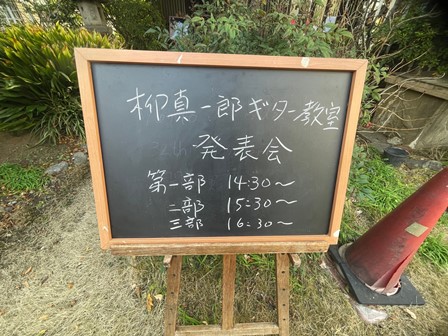 柳真一郎ギター教室
発表会
第一部 14:30～
二部 15:30～
三部 16:30～